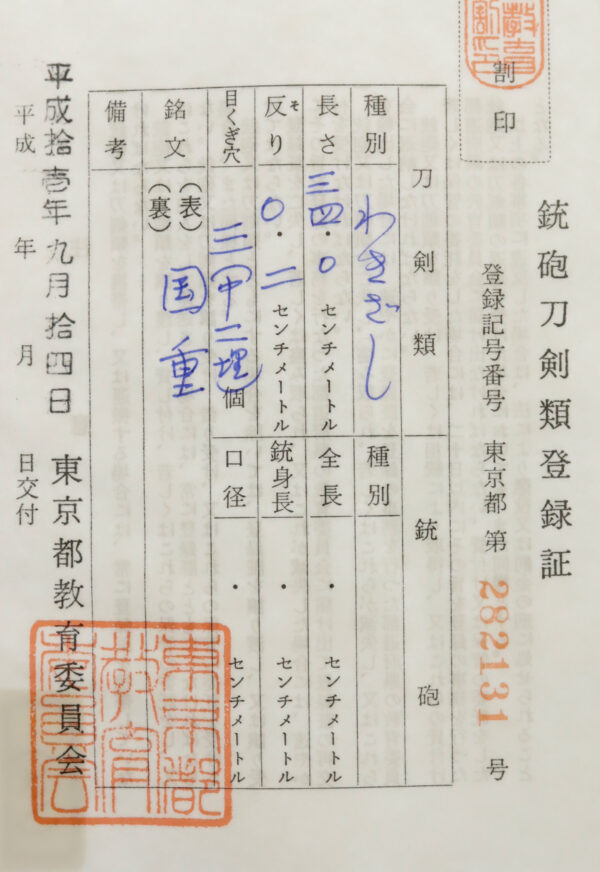 銃砲刀剣類登録証
割印
登録記号番号 東京都 第 282131 号
刀剣類
銃砲
種別 わきざし
種別
長さ 三四・〇 センチメートル
全長 ・ センチメートル
反り 〇・二 センチメートル
そ
銃身長 ・ センチメートル
目くぎ穴 三(中二埋)個
口径 ・ センチメートル
銘文 (表) 国重
(裏)
備考
平成拾壱年九月拾四日 東京都教育委員会
平成 年 月 日交付
東京都
教育
委員会